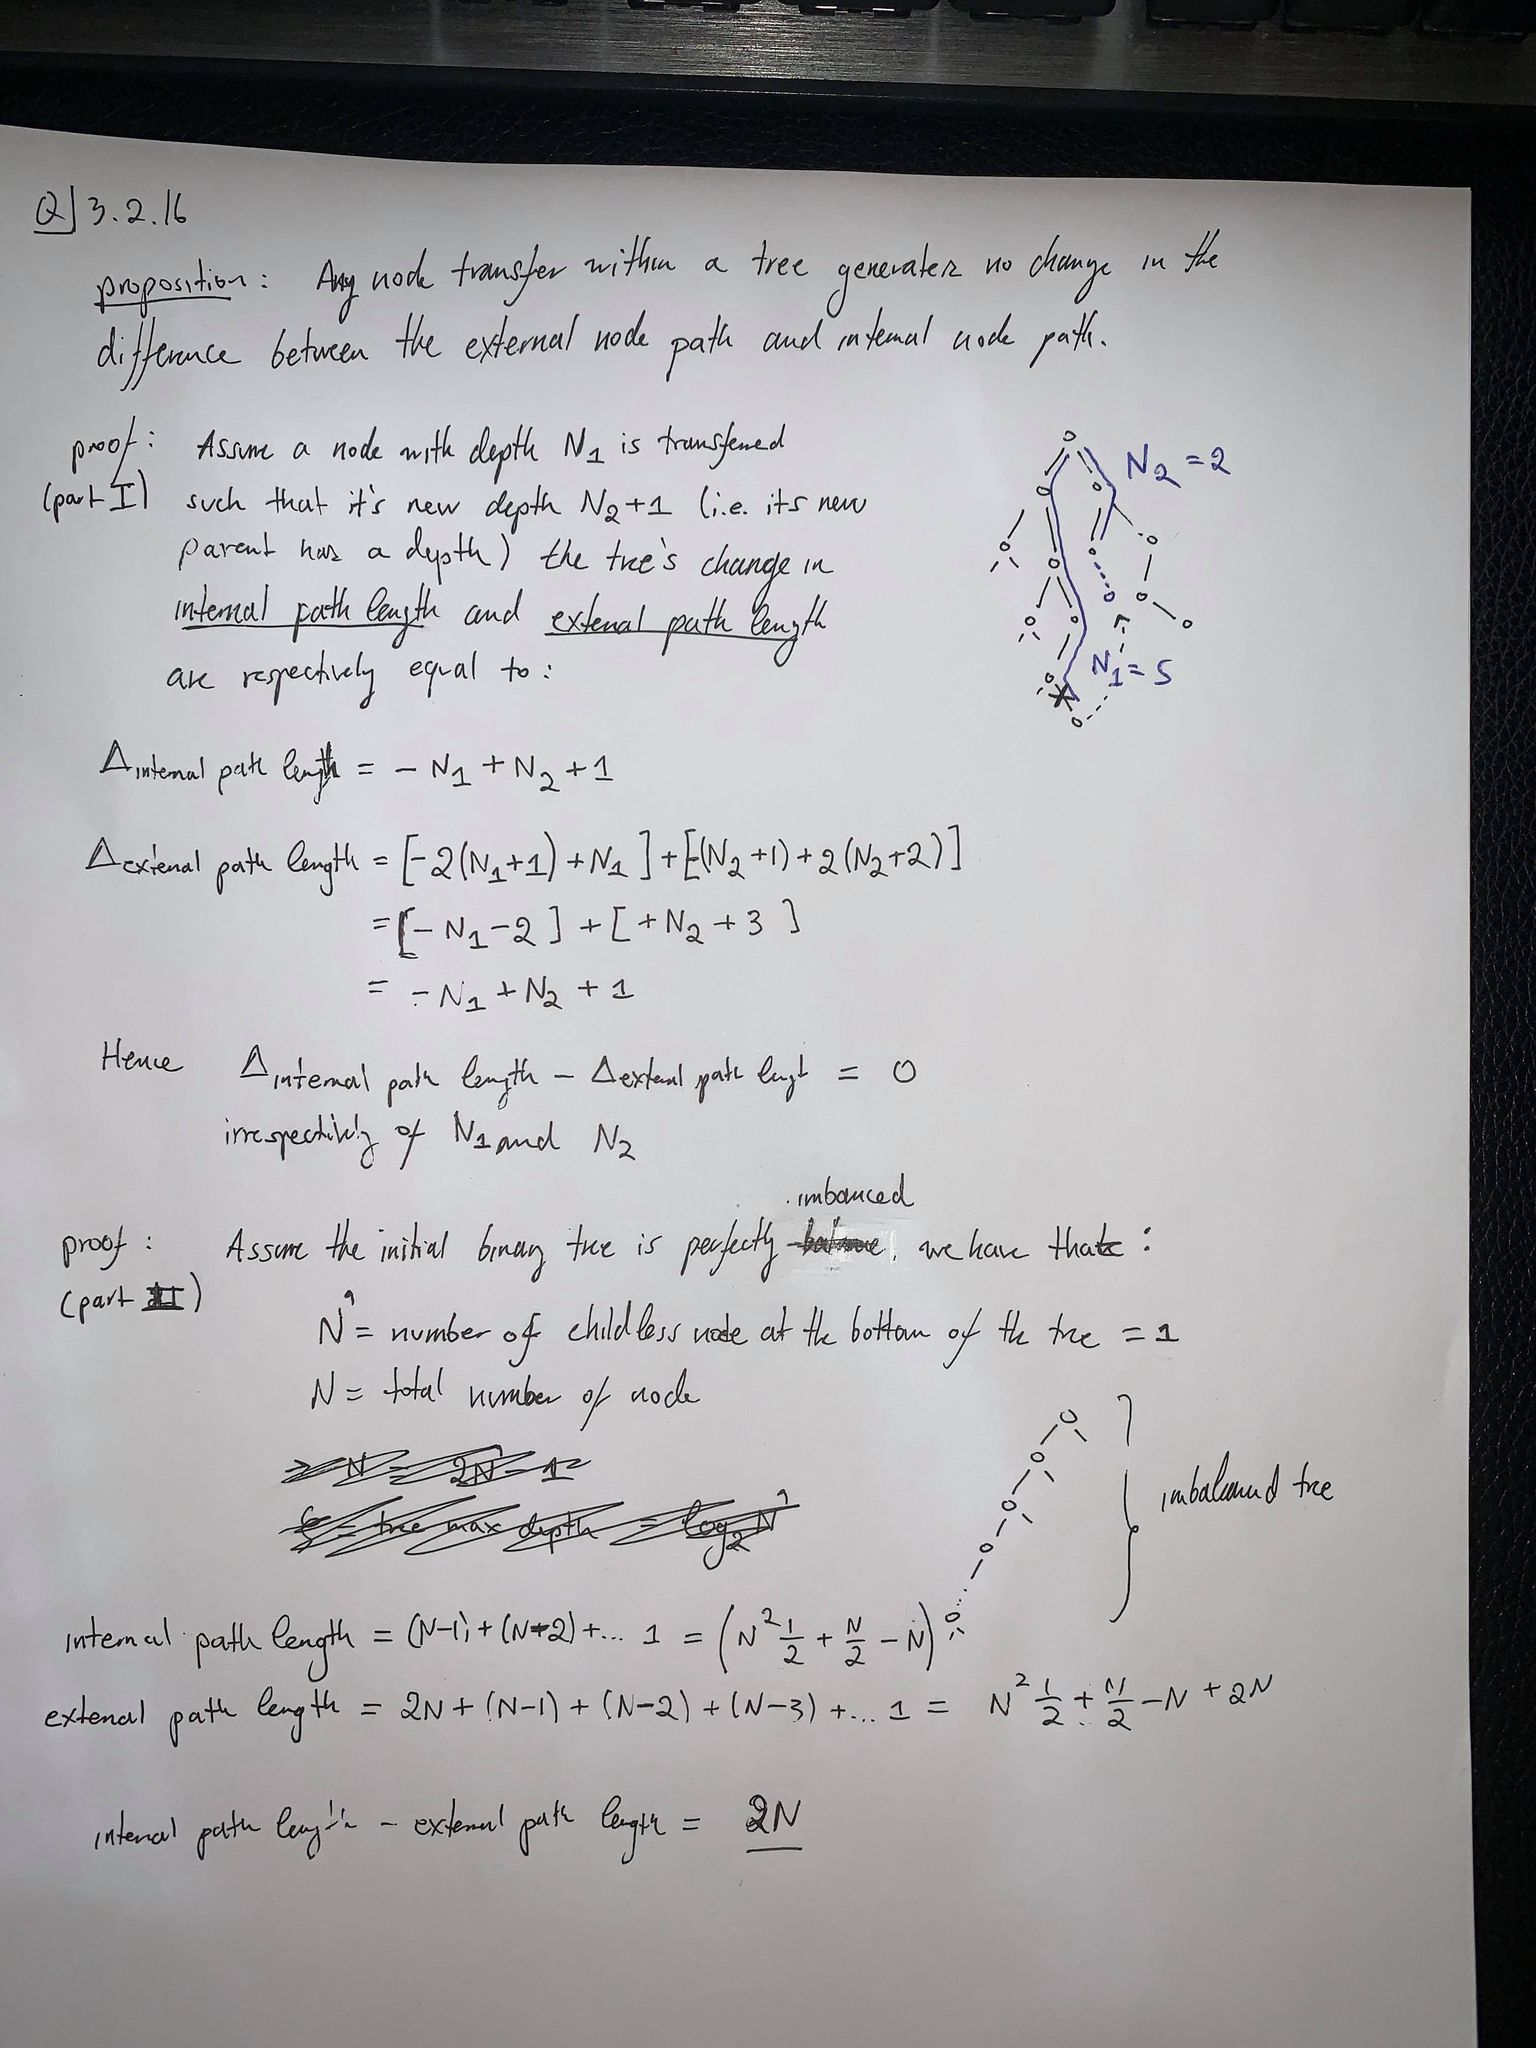 Q] 3.2.16
proposition: Any node transfer within a tree generates no change in the
difference between the external node path and internal node path.
proof: Assume a node with depth N1 is transfered
(part I) such that it's new depth N2+1 (i.e. its new
parent has a depth) the tree's change in
internal path length and external path length
are respectively equal to:
N2 = 2
N1 = 5
Δinternal path length = - N1 + N2 + 1
Δextenal path length = [-2(N1+1) + N1] + [-(N2+1) + 2(N2+2)]
= [- N1 - 2] + [+ N2 + 3]
= - N1 + N2 + 1
Hence Δinternal path length - Δextenal path lengt = 0
irrespectively of N1 and N2
imbanced
proof: Assume the initial binary tree is perfectly balance, we have that:
(part II)
N̂ = number of childless node at the bottom of the tree = 1
N = total number of node
N = 2N̂ - 1
= tree max depth = log2 N̂
imbalanced tree
internal path length = (N-1) + (N-2) + ... 1 = (N² 1/2 + N/2 - N)
extenal path length = 2N + (N-1) + (N-2) + (N-3) + ... 1 = N² 1/2 + N/2 - N + 2N
internal path length - external path length = 2N